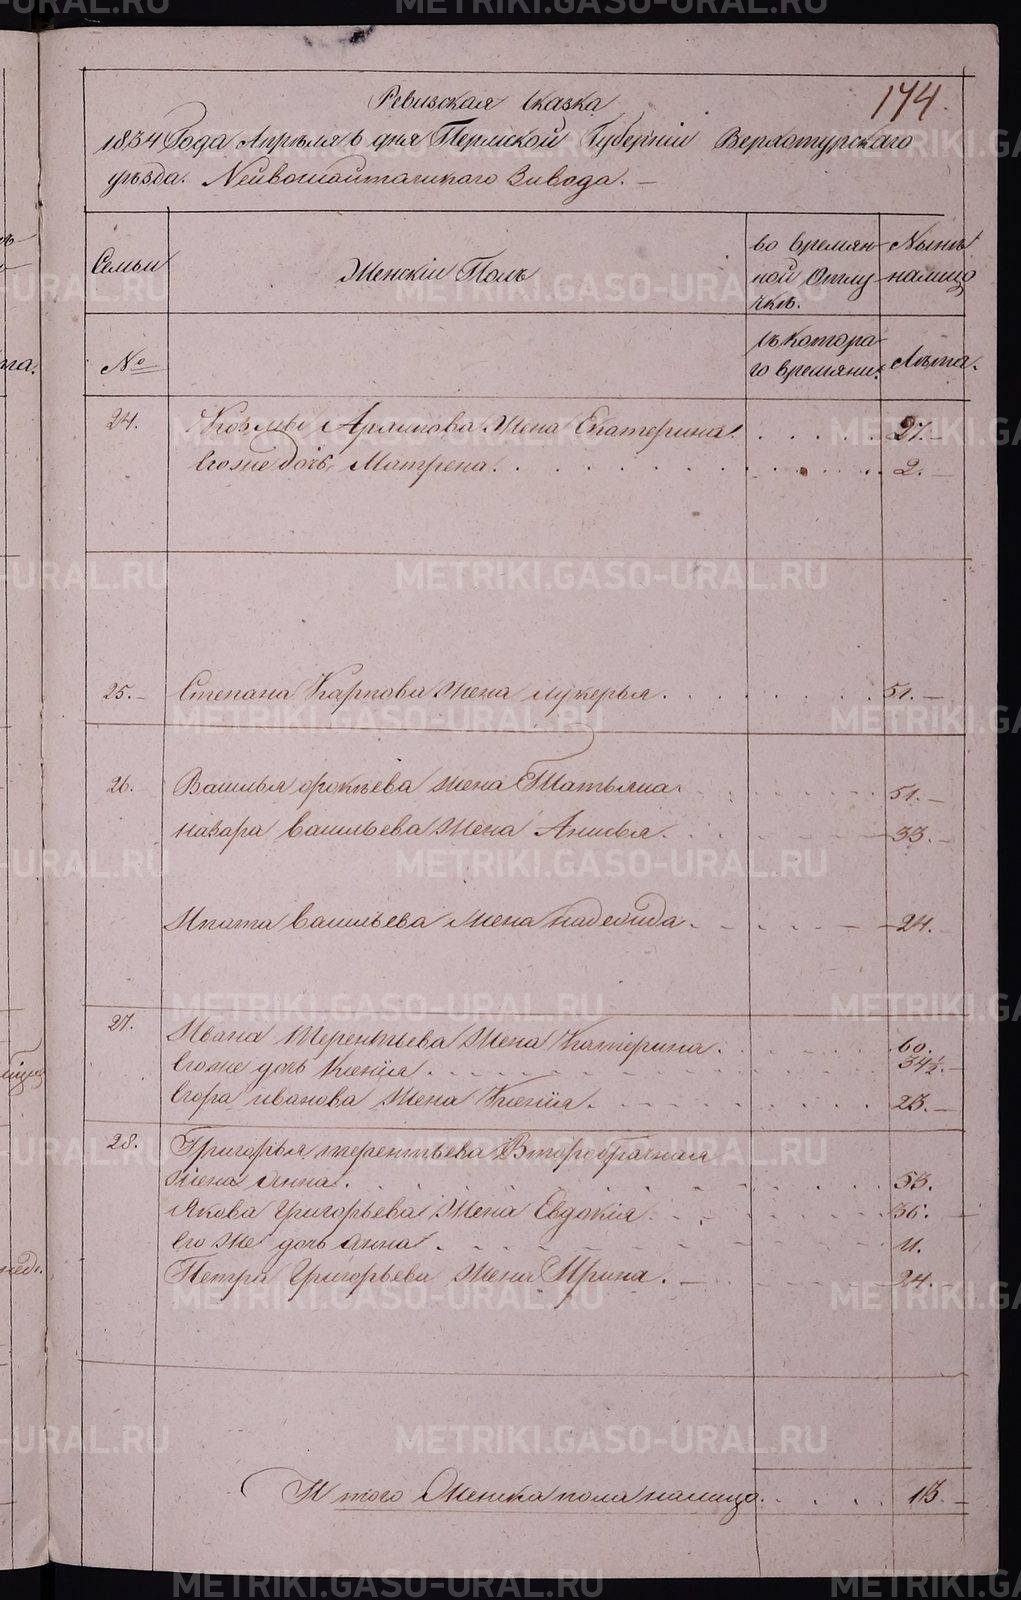 174.
Ревизская сказка
1834 Года Апреля 6 дня Пермской Губернiи Верхотурскаго
уезда. Нейвошайтанскаго Завода. —
Семьи
Женскiй Полъ
во времян-
ной отлу
чкѣ.
Нынѣ
налицо
№
съ котора
го времяни.
Лѣта.
24. Козьмы Архипова Жена Екатерина. 27. —
Его же дочь Матрена. 2. —
25. — Степана Карпова Жена лукерья. 51. —
26. Василья фокѣева жена Татьяна. 51. —
назара Васильева Жена Анисья. 33. —
Ипата Васильева Жена надежда. 24.
27. Ивана Терентьева Жена Катерина. 60.
Его же дочь Ксенiя. 34½. —
Егора иванова Жена Ксенiя. 23. —
28. Григорья терентьева Второбрачная
жена Анна. 53.
Якова Григорьева Жена Евдокiя. 36. —
Его же дочь Анна. 11.
Петра Григорьева Жена Ирина. — 24.
Итого Женска пола налицо. 13. —
METRIKI.GASO-URAL.RU